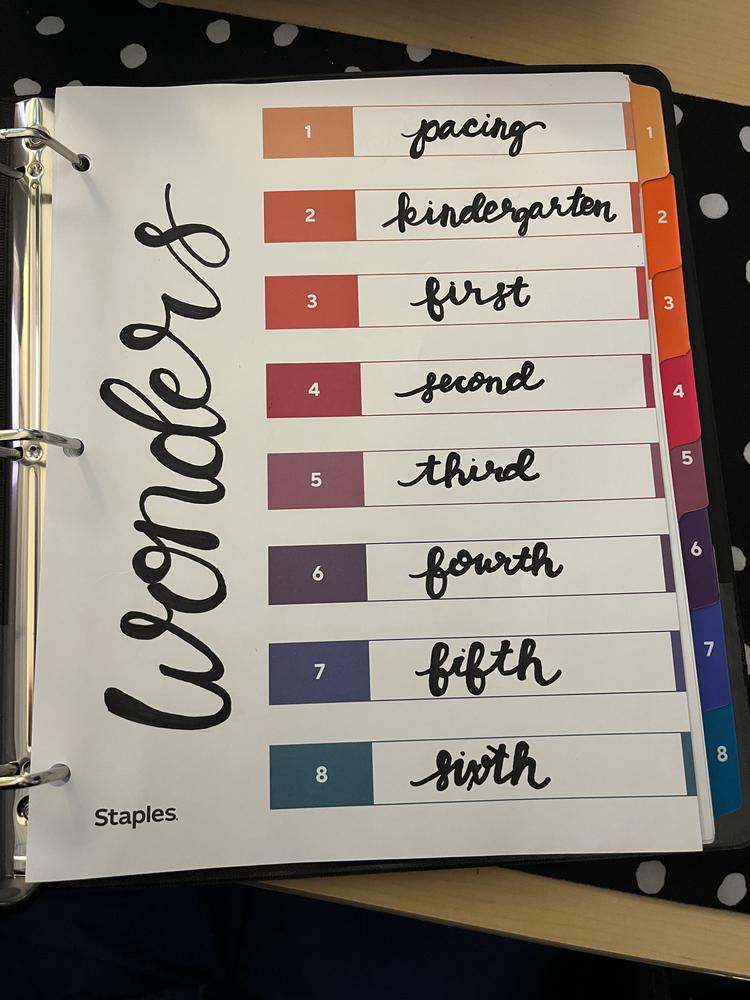 wonders
1 pacing 1
2 kindergarten 2
3 first 3
4 second 4
5 third 5
6 fourth 6
7 fifth 7
8 sixth 8
Staples.